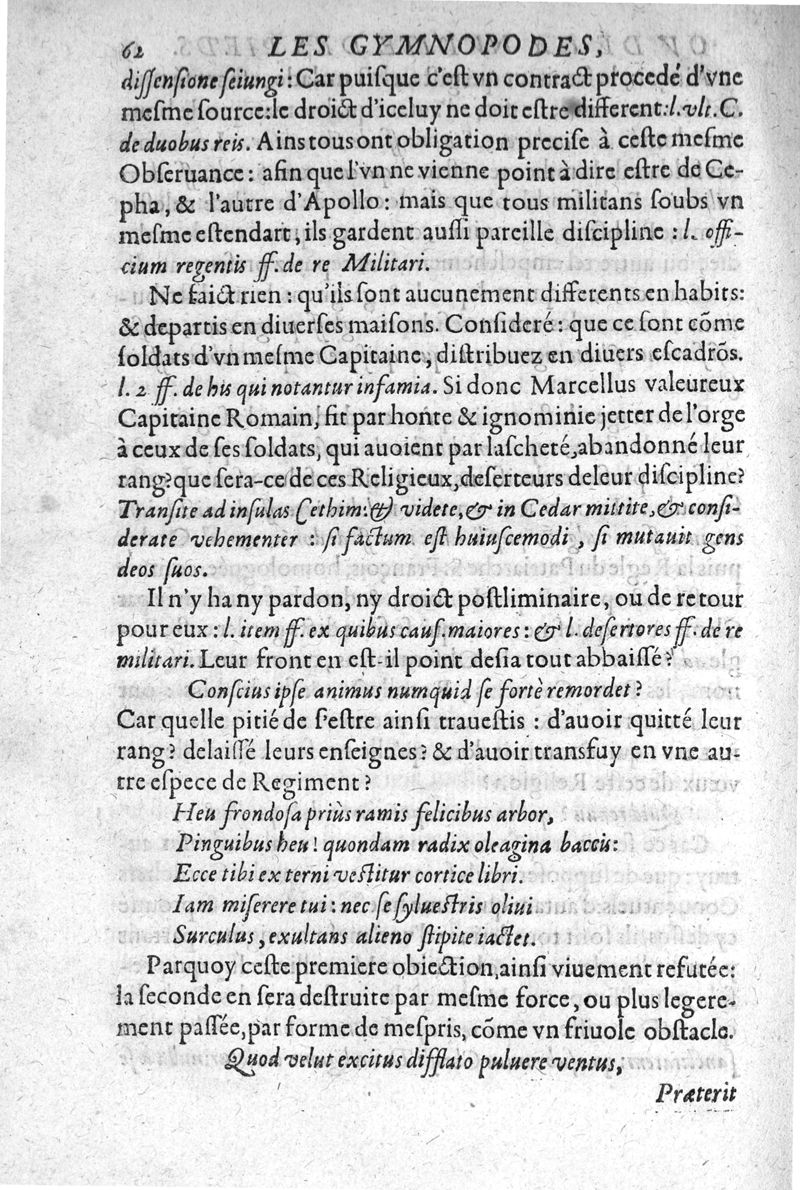 62 LES GYMNOPODES,
diſſenſione ſeiungi : Car puiſque c'eſt vn contract procedé d'vne
meſme ſource:le droict d'iceluy ne doit eſtre different:l.vlt.C.
de duobus reis. Ains tous ont obligation preciſe à ceſte meſme
Obſeruance : afin que l'vn ne vienne point à dire eſtre de Ce-
pha, & l'autre d'Apollo : mais que tous militans ſoubs vn
meſme eſtendart, ils gardent auſſi pareille diſcipline : l. offi-
cium regentis ff. de re Militari.
Ne faict rien : qu'ils ſont aucunement differents en habits:
& departis en diuerſes maiſons. Conſideré : que ce ſont cõme
ſoldats d'vn meſme Capitaine, diſtribuez en diuers eſcadrõs.
l. 2 ff. de his qui notantur infamia. Si donc Marcellus valeureux
Capitaine Romain, fit par honte & ignominie jetter de l'orge
à ceux de ſes ſoldats, qui auoient par laſcheté,abandonné leur
rang?que ſera-ce de ces Religieux,deſerteurs deleur diſcipline?
Tranſite ad inſulas Cethim:& videte,& in Cedar mittite,& conſi-
derate vehementer : ſi factum eſt huiuſcemodi, ſi mutauit gens
deos ſuos.
Il n'y ha ny pardon, ny droict poſtliminaire, ou de retour
pour eux : l. item ff. ex quibus cauſ. maiores : & l. deſertores ff. de re
militari. Leur front en eſt-il point deſia tout abbaiſſé ?
Conſcius ipſe animus numquid ſe fortè remordet ?
Car quelle pitié de ſ'eſtre ainſi traueſtis : d'auoir quitté leur
rang ? delaiſſé leurs enſeignes? & d'auoir transfuy en vne au-
tre eſpece de Regiment ?
Heu frondoſa priùs ramis felicibus arbor,
Pinguibus heu ! quondam radix oleagina baccis:
Ecce tibi externi veſtitur cortice libri.
Iam miſerere tui : nec ſe ſylueſtris oliui
Surculus, exultans alieno ſtipite iactet.
Parquoy ceſte premiere obiection,ainſi viuement refutée:
la ſeconde en ſera deſtruite par meſme force, ou plus legere-
ment paſſée,par forme de meſpris, cõme vn friuole obſtacle.
Quod velut excitus difflato puluere ventus,
Præterit